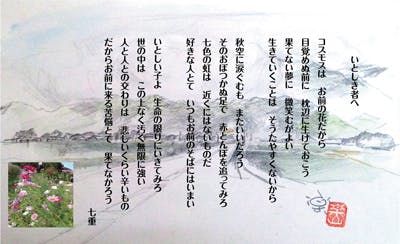 いとしき者へ
コスモスは お前の花だから
目覚めぬ前に 枕辺に生けておこう
果てない夢に 微笑むがよい
生きていくことは そうたやすくないから
秋空に涙ぐむも またいいだろう
そのおぼつかぬ足で 赤とんぼを追ってみろ
七色の虹は 近くにはないものだ
好きな人とて いつもお前のそばにはいまい
いとしい子よ 生命の限りにいきてみろ
世の中は この上なく汚く無限に強い
人と人との交わりは 悲しいくらい辛いもの
だからお前に来る苦悩とて 果てなかろう
七重